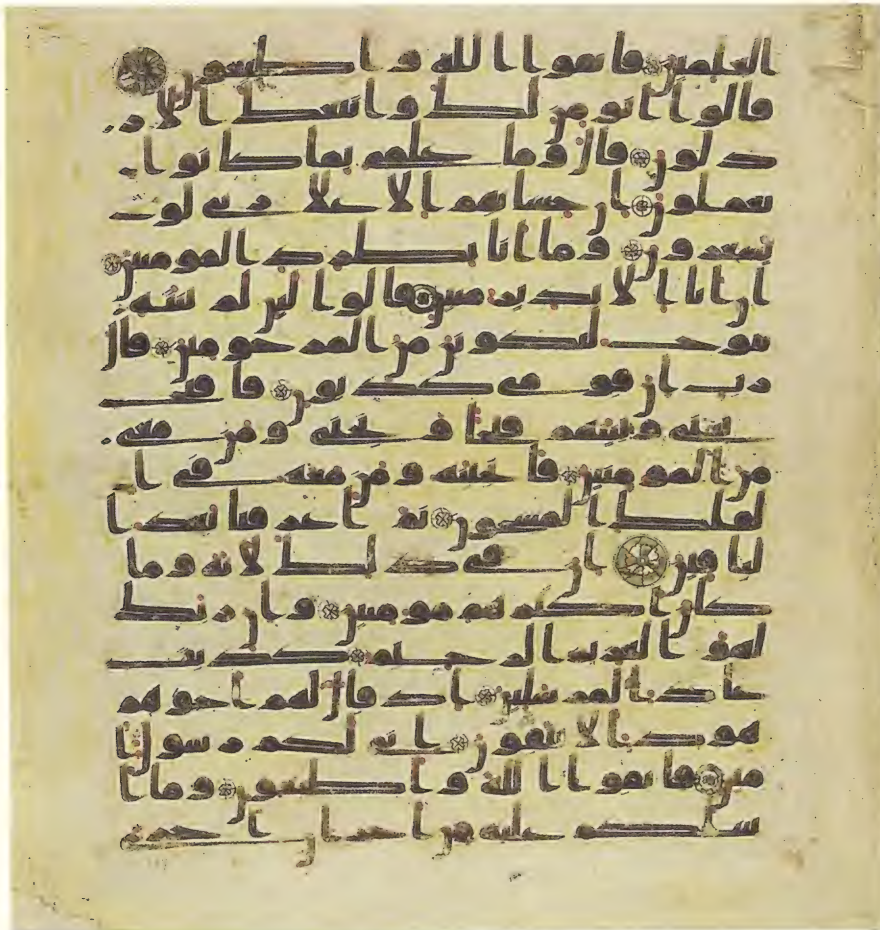 العلمين فاتقوا الله واطيعون
قالوا انومن لك واتبعك الار
ذلون قال وما علمي بما كانوا
يعملون ان حسابهم الا على ربي لو
تشعرون وما انا بطارد المومنين
ان انا الا نذير مبين قالوا لين لم تنته
ينوح لتكونن من المرجومين قال
رب ان قومي كذبون فافتح
بيني وبينهم فتحا ونجني ومن معي
من المومنين فانجينه ومن معه في ا
لفلك المشحون ثم اغرقنا بعد ا
لباقين ان في ذلك لاية وما
كان اكثرهم مومنين وان ربك
لهو العزيز الرحيم كذبت
عاد المرسلين اذ قال لهم اخوهم
هود الا تتقون اني لكم رسول ا
مين فاتقوا الله واطيعون وما ا
سلكم عليه من اجر ان اجري